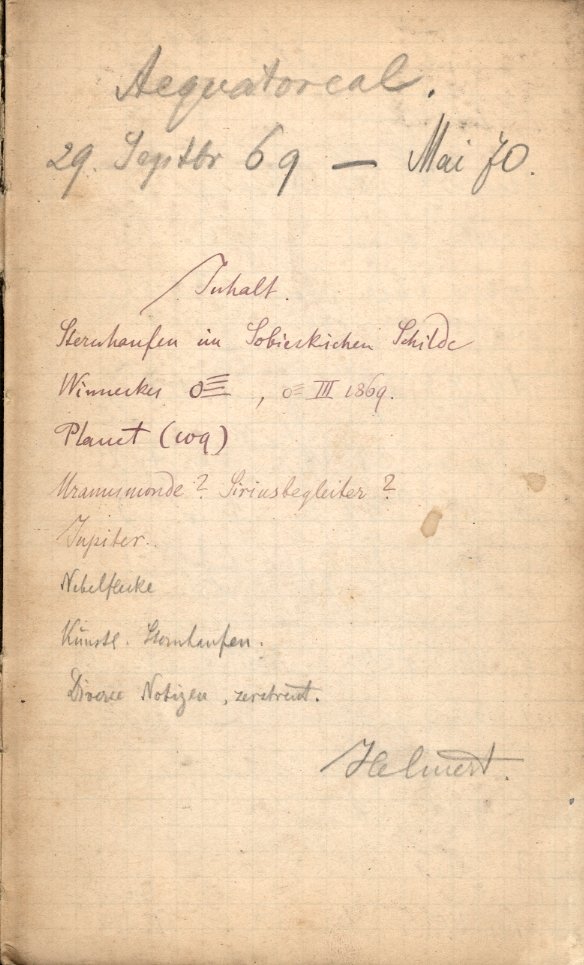 Aequatoreal.
29. Septbr 69 — Mai 70.
Inhalt.
Sternhaufen im Sobieskichen Schilde
Winneckes ☄, ☄ III 1869.
Planet (109)
Uranusmonde? Siriusbegleiter?
Jupiter.
Nebelflecke
Künstl. Sternhaufen.
Diverse Notizen, zerstreut.
Helmert.